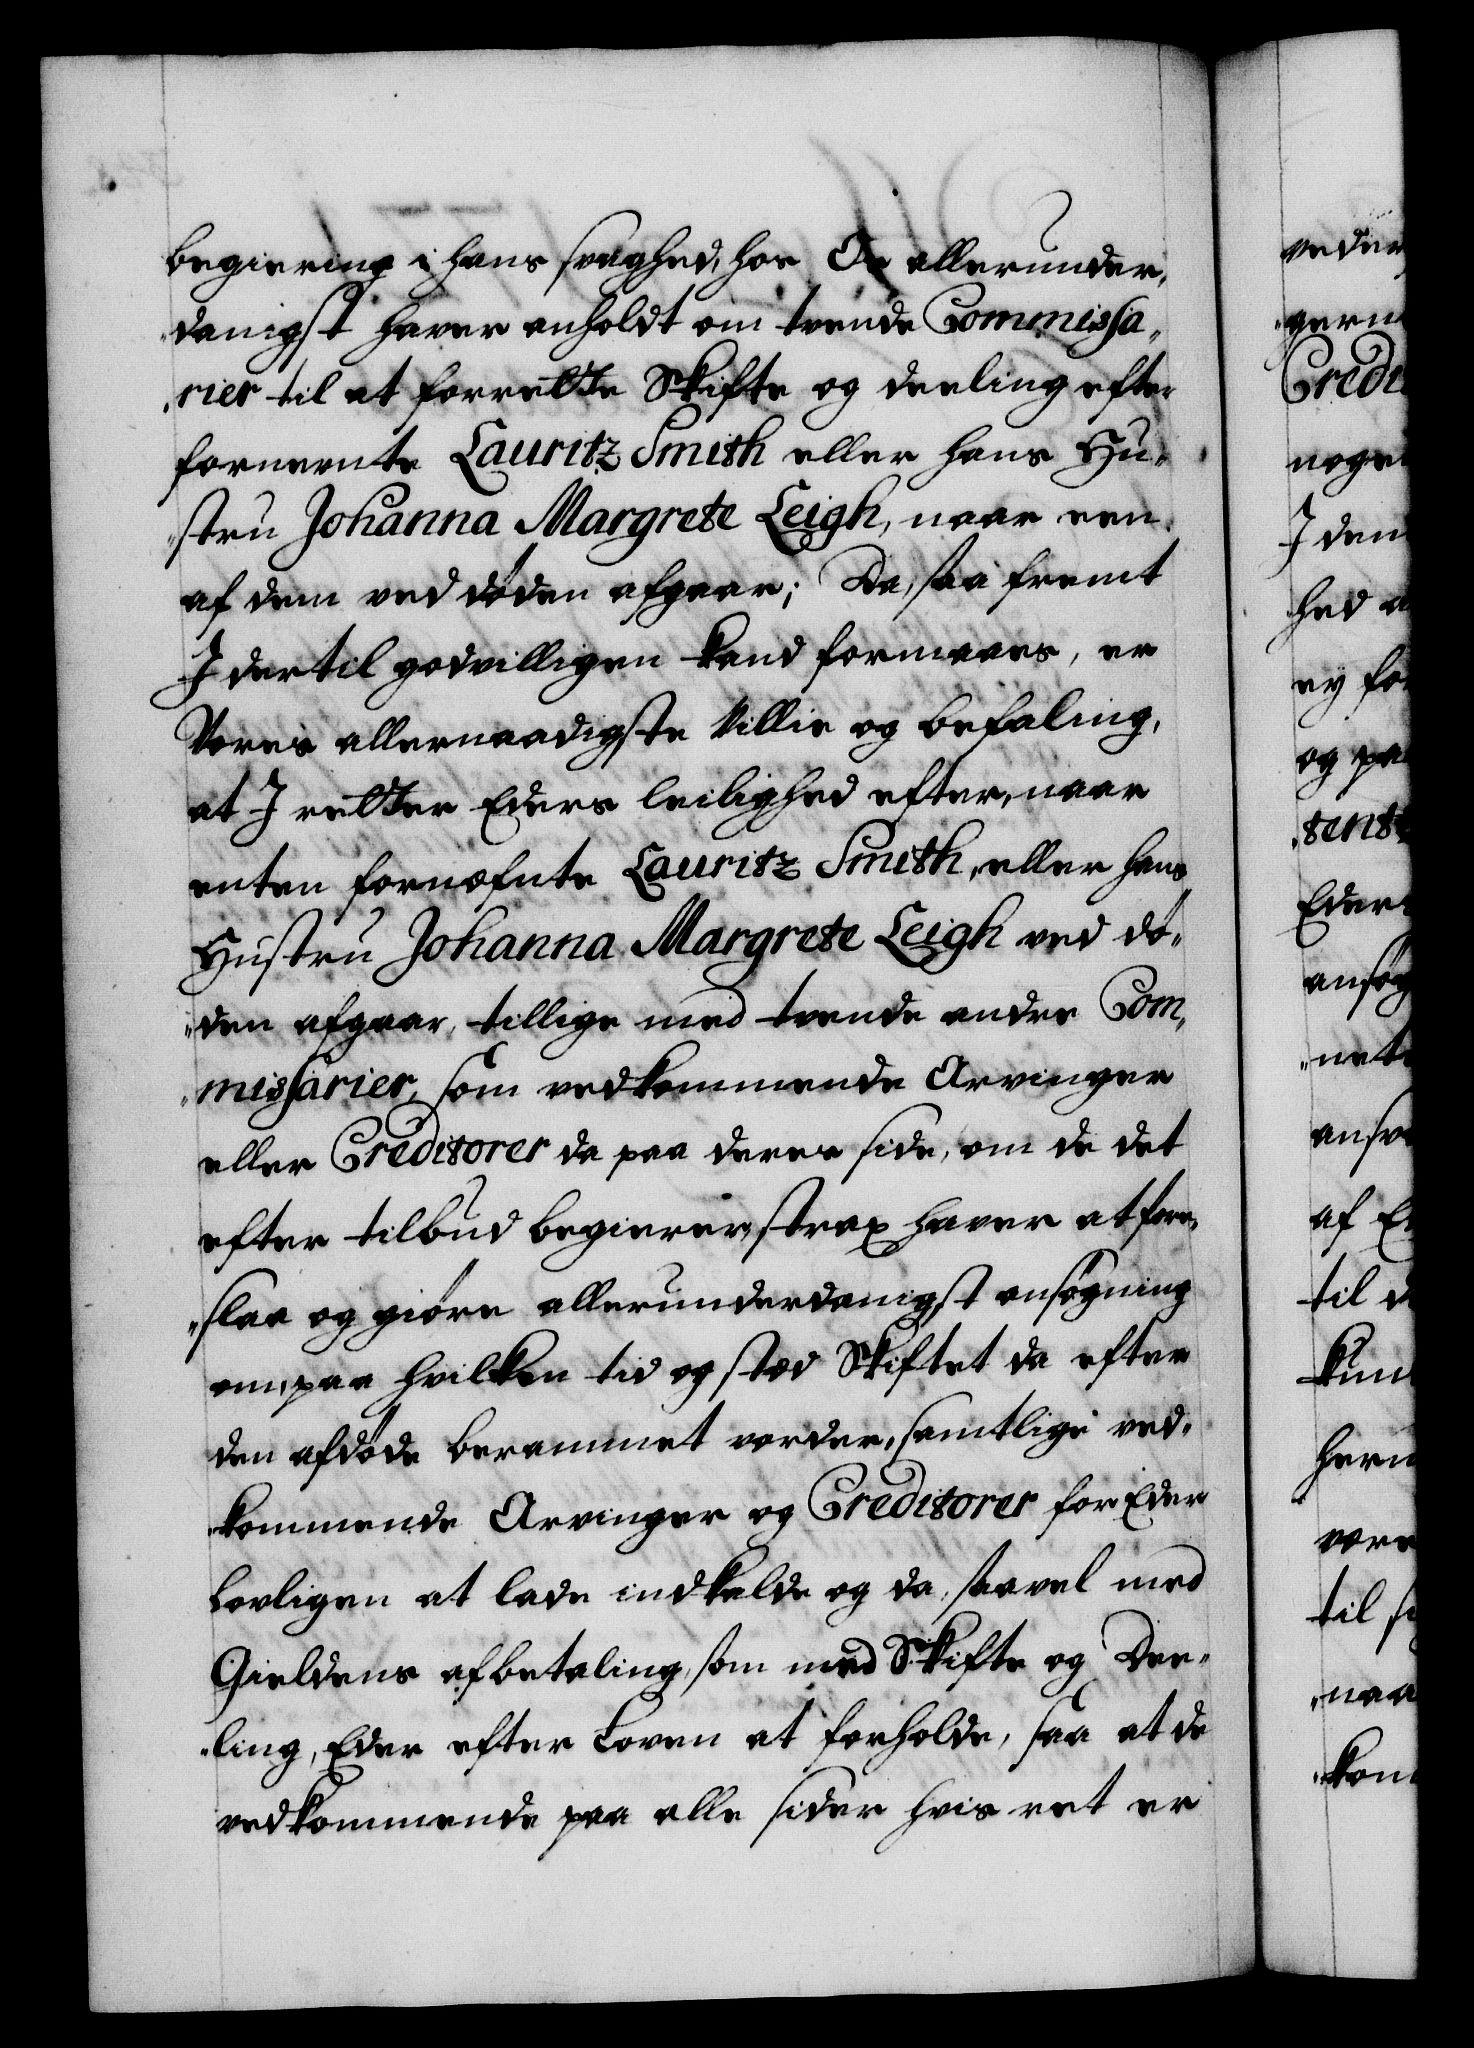 begiering i hans svaghed, hos Os allerunder„
„danigst haver anholdt om tvende Commissa„
„rier til at forrette Skifte og deeling efter
fornevnte Lauritz Smith eller hans Hu„
„stru Johanna Margrete Leigh, naar een
af dem ved døden afgaar; Da, saa fremt
I dertil godvilligen kand formaaes, er
Vores allernaadigste Villie og befaling,
at I retter Eders leilighed efter, naar
enten fornæfnte Lauritz Smith, eller hans
Hustru Johanna Margrete Leigh ved dø„
„den afgaar, tillige med tvende andre Com„
„missarier, som vedkommende Arvinger
eller Creditorer da paa deres side, om de det
efter tilbud begierer, strax haver at fore„
„slaa og giøre allerunderdanigst ansøgning
om, paa hvilken tid og stæd Skiftet da efter
den afdøde berammet vorder, samtlige ved„
„kommende Arvinger og Creditorer for Eder
lovligen at lade indkalde og da, saavel med
Gieldens afbetaling, som med Skifte og Dee„
„ling, Eder efter Loven at forholde, saa at de
vedkommende paa alle sider hvis ret er
veder
„gern
Credi
noge
I den
hed a
ey fo
og pa
„tent
Eder
ansøg
„net
ansv
af E
til d
kun
hern
vore
til s
„naa
„kom